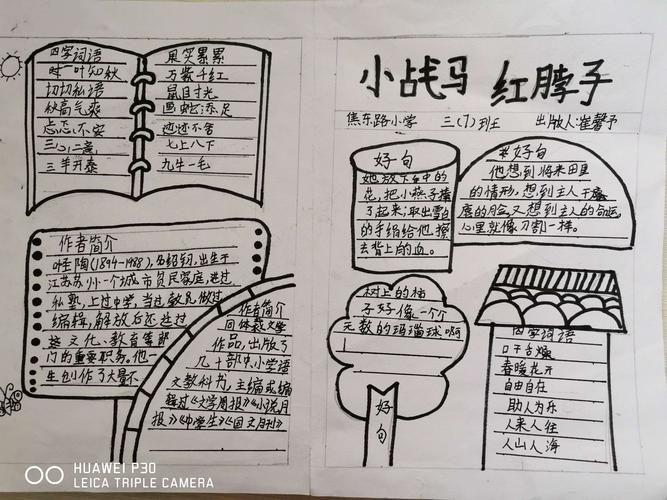 四字词语
一叶知秋
切切私语
秋高气爽
忐忑不安
三心二意
三羊开泰
果实累累
万紫千红
鼠目寸光
画蛇添足
迹迹不舍
七上八下
九牛一毛
作者简介
(1894-1988),
出生于
江苏苏州一个城市贫民家庭,进过
私塾,上过中学,当过教员,做过
编辑,解放后还进过
文化、教育等部
门的重要职务,他一
生创作了大量不
作者简介
同体裁文学
作品,出版了
几十部中、小学语
文教科书,主编或编
辑过《文学周报》《小说月
报》《中学生》《国文月刊》
小战马 红脖子
焦东路小学 三(7)班 出版人:崔馨予
好句
她放下手中的
花,把小燕子捧
了起来;取出雪白
的手绢给他,擦
去背上的血。
好句
他想到将来田里
的情形,想到主人干瘪
的脸,又想到主人的命运,
心里就像刀割一样。
树上的柿
子好像一个个
无数的玛瑙球啊
好句
四字词语
口干舌燥
春暖花开
自由自在
助人为乐
人来人往
人山人海
HUAWEI P30
LEICA TRIPLE CAMERA